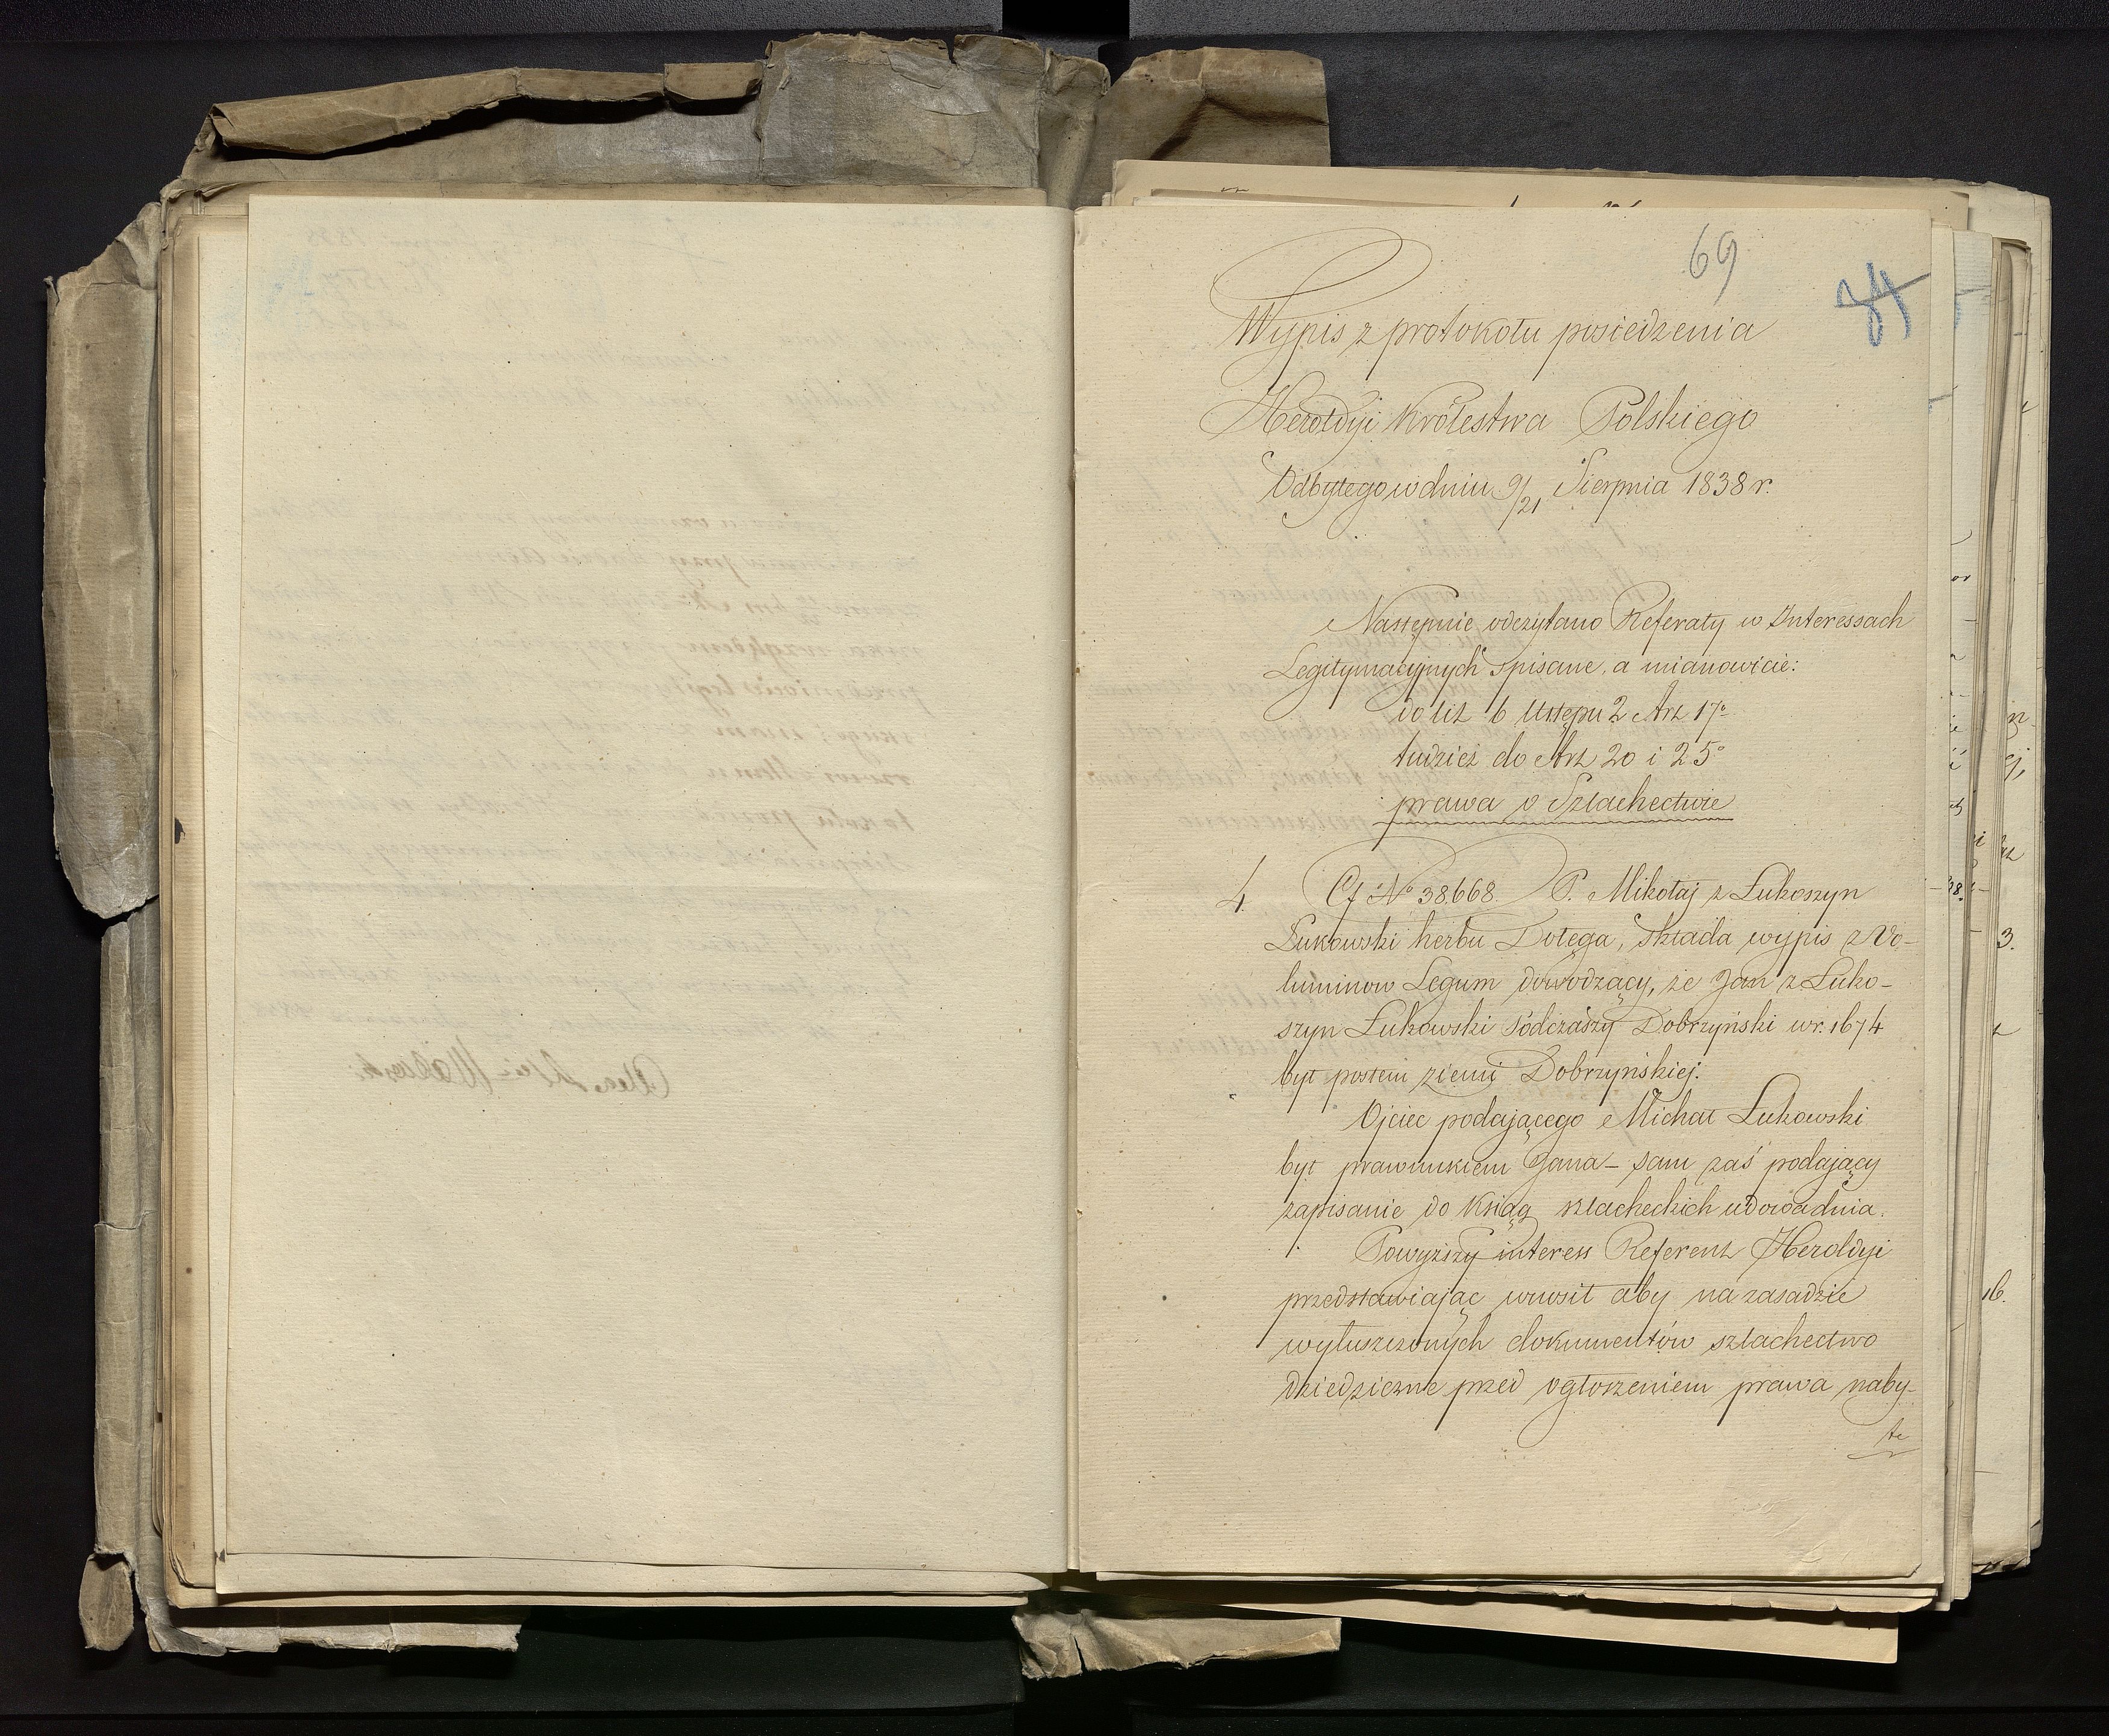 69
Wypis z protokołu posiedzenia
Heroldyi Królestwa Polskiego
Odbytego w dniu 9/21 Sierpnia 1838 r.
Następnie odczytano Referaty w Interessach
Legitymacyjnych spisane, a mianowicie:
do lit b Ustępu 2 Art 17º
tudzież do Art 20 i 25º
prawa o Szlachectwie
4. Cf Nº 38.668. P. Mikołaj z Łukoszyn
Łukowski herbu Dołęga, składa wypis z Vo-
luminow Legum dowodzący, że Jan z Łuko-
szyn Łukowski Podczaszy Dobrzyński w r. 1674
był posłem ziemi Dobrzyńskiej.
Ojciec podającego Michał Łukowski
był prawnukiem Jana – sam zaś podający
zapisanie do Ksiąg szlacheckich udowadnia.
Powyższy interess Referent Heroldyi
przedstawiając wnosił aby na zasadzie
wyłuszczonych dokumentów szlachectwo
dziedziczne przed ogłoszeniem prawa naby-
te